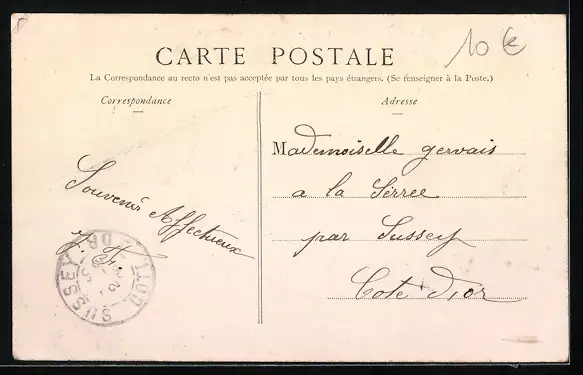 10 €
CARTE POSTALE
La Correspondance au recto n'est pas acceptée par tous les pays étrangers. (Se renseigner à la Poste.)
Correspondance
Adresse
Souvenir Affectueux
Mademoiselle gervais
a la Serrée
par Sussey
Cote d'or
SUSSEY COTE D'OR